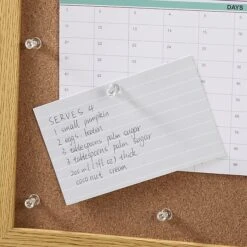 DAYS
SERVES 4
1 small pumpkin
2 eggs, beaten
3 tablespoons palm sugar
3 tablespoons palm sugar
200 ml (7fl oz) thick
coconut cream